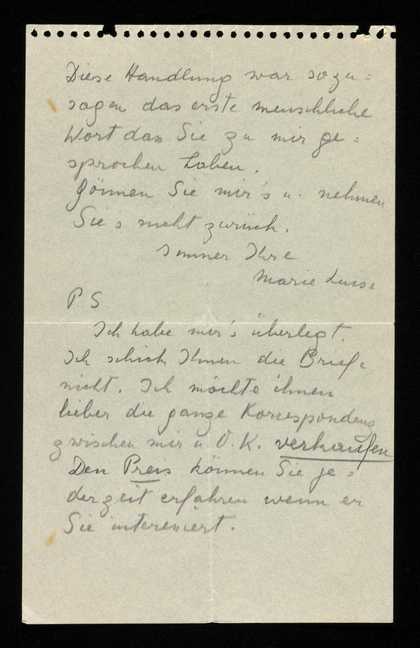 Diese Handlung war sozu=
sagen das erste menschliche
Wort das Sie zu mir ge=
sprochen haben.
Gönnen Sie mir's u. nehmen
Sie's nicht zurück.
Immer Ihre
Marie Luise
PS
Ich habe mir's überlegt.
Ich schick Ihnen die Briefe
nicht. Ich möchte ihnen
lieber die ganze Korrespondenz
zwischen mir u. O.K. verkaufen
Den Preis können Sie je=
derzeit erfahren wenn er
Sie interessiert.